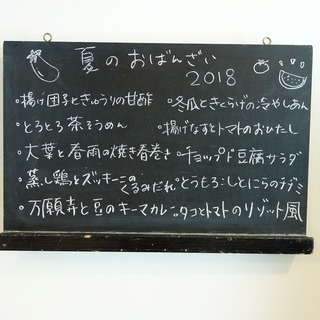 夏のおばんざい
2018
・揚げ団子ときゅうりの甘酢
・冬瓜ときくらげの冷やしあん
・とろとろ茶そうめん
・揚げなすとトマトのおひたし
・大葉と春雨の焼き春巻き
・チョップド豆腐サラダ
・蒸し鶏とズッキーニの
くるみだれ
・とうもろこしとにらのチヂミ
・万願寺と豆のキーマカレー
・タコとトマトのリゾット風